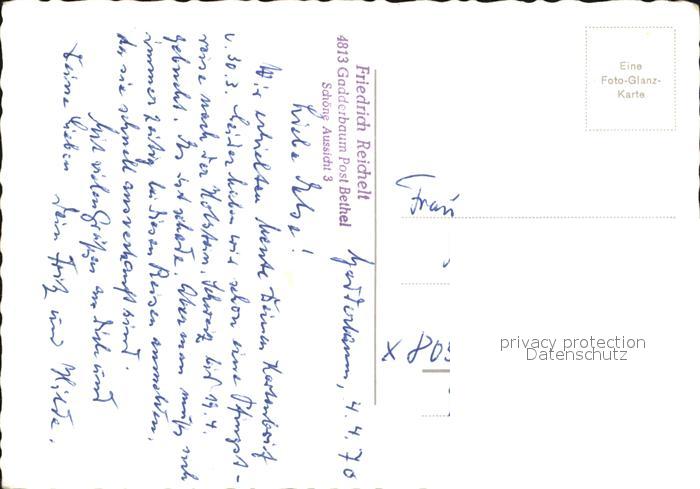 Friedrich Reichelt
4813 Gadderbaum Post Bethel
Schöne Aussicht 3
Gadderbaum, 4.4.70
Liebe Else!
Wir erhielten heute Deinen Kartenbrief
v. 30.3. Leider haben wir schon eine Pfingst-
reise nach der Holstein. Schweiz bis 19.4.
gebucht. Es ist schade. Aber man muß sich
immer zeitig bei diesen Reisen anmelden,
da sie schnell ausverkauft sind.
Mit vielen Grüßen an Dich und
Deine Lieben Dein Fritz und Hilde.
Eine
Foto-Glanz-
Karte
Frau
x 805
privacy protection
Datenschutz